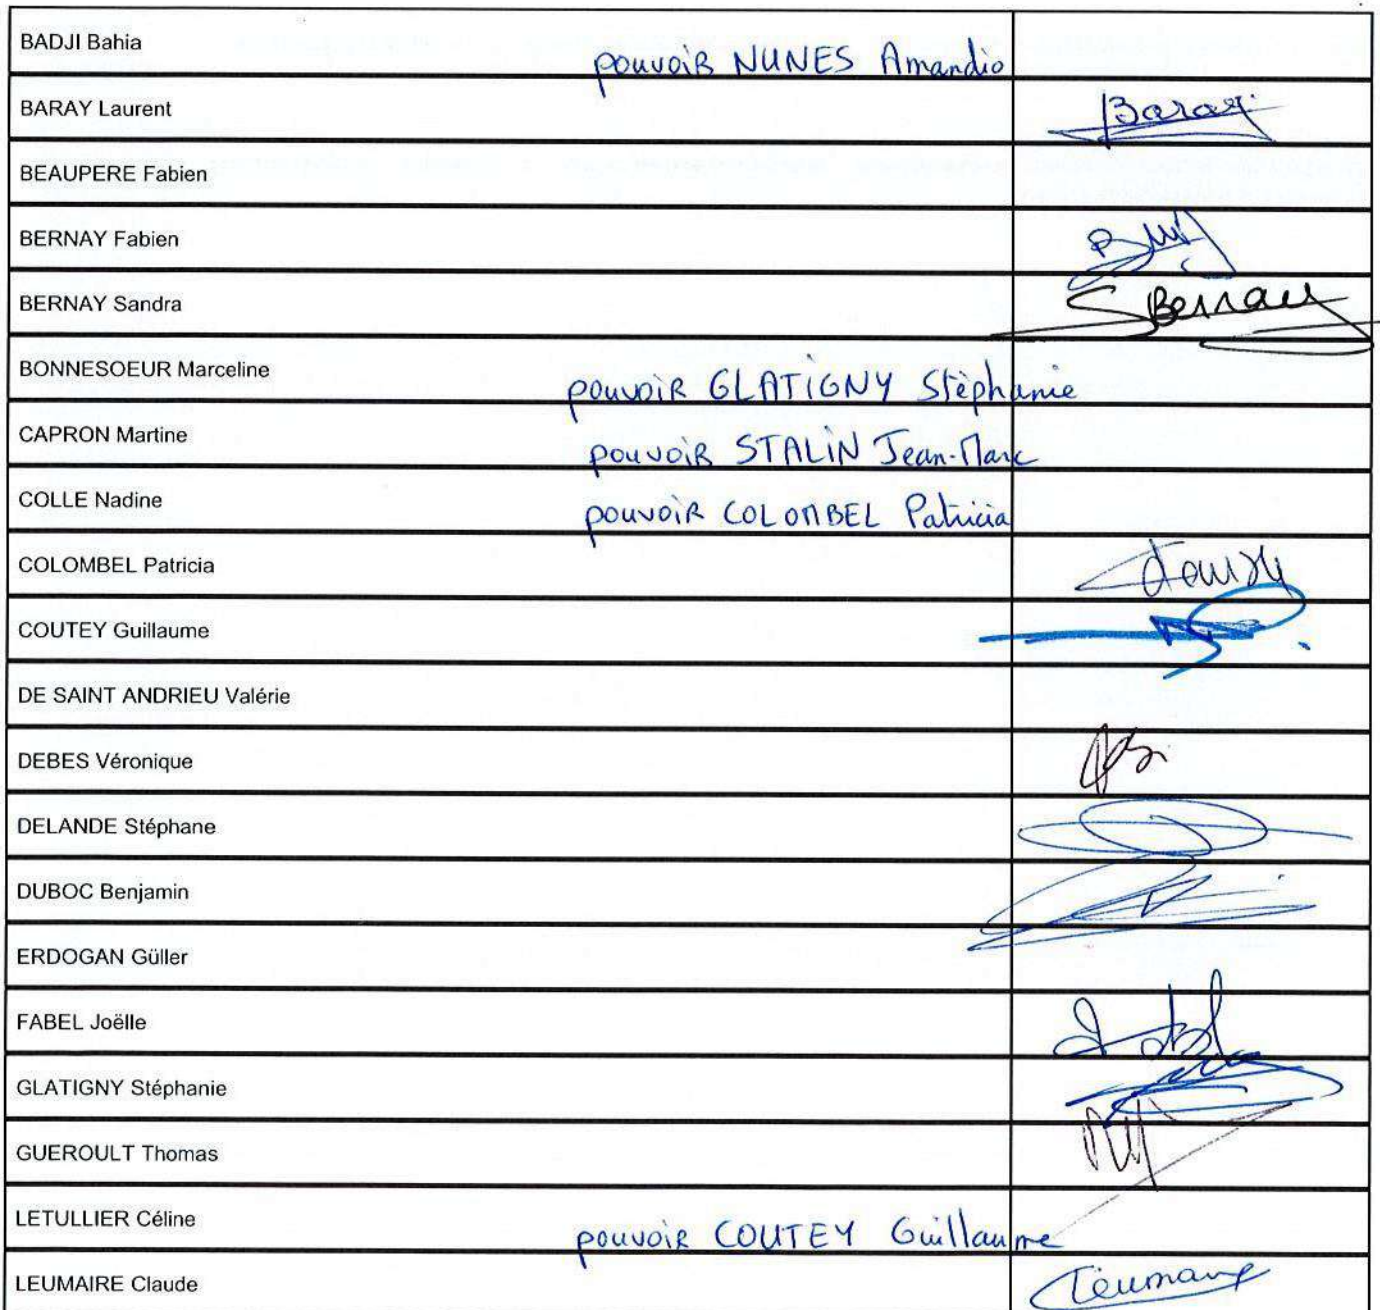 BADJI Bahia pouvoir NUNES Amandio
BARAY Laurent Baray
BEAUPERE Fabien
BERNAY Fabien
BERNAY Sandra SBernay
BONNESOEUR Marceline pouvoir GLATIGNY Stéphanie
CAPRON Martine pouvoir STALIN Jean-Marc
COLLE Nadine pouvoir COLOMBEL Patricia
COLOMBEL Patricia
COUTEY Guillaume
DE SAINT ANDRIEU Valérie
DEBES Véronique
DELANDE Stéphane
DUBOC Benjamin
ERDOGAN Güller
FABEL Joëlle
GLATIGNY Stéphanie
GUEROULT Thomas
LETULLIER Céline pouvoir COUTEY Guillaume
LEUMAIRE Claude Leumaire